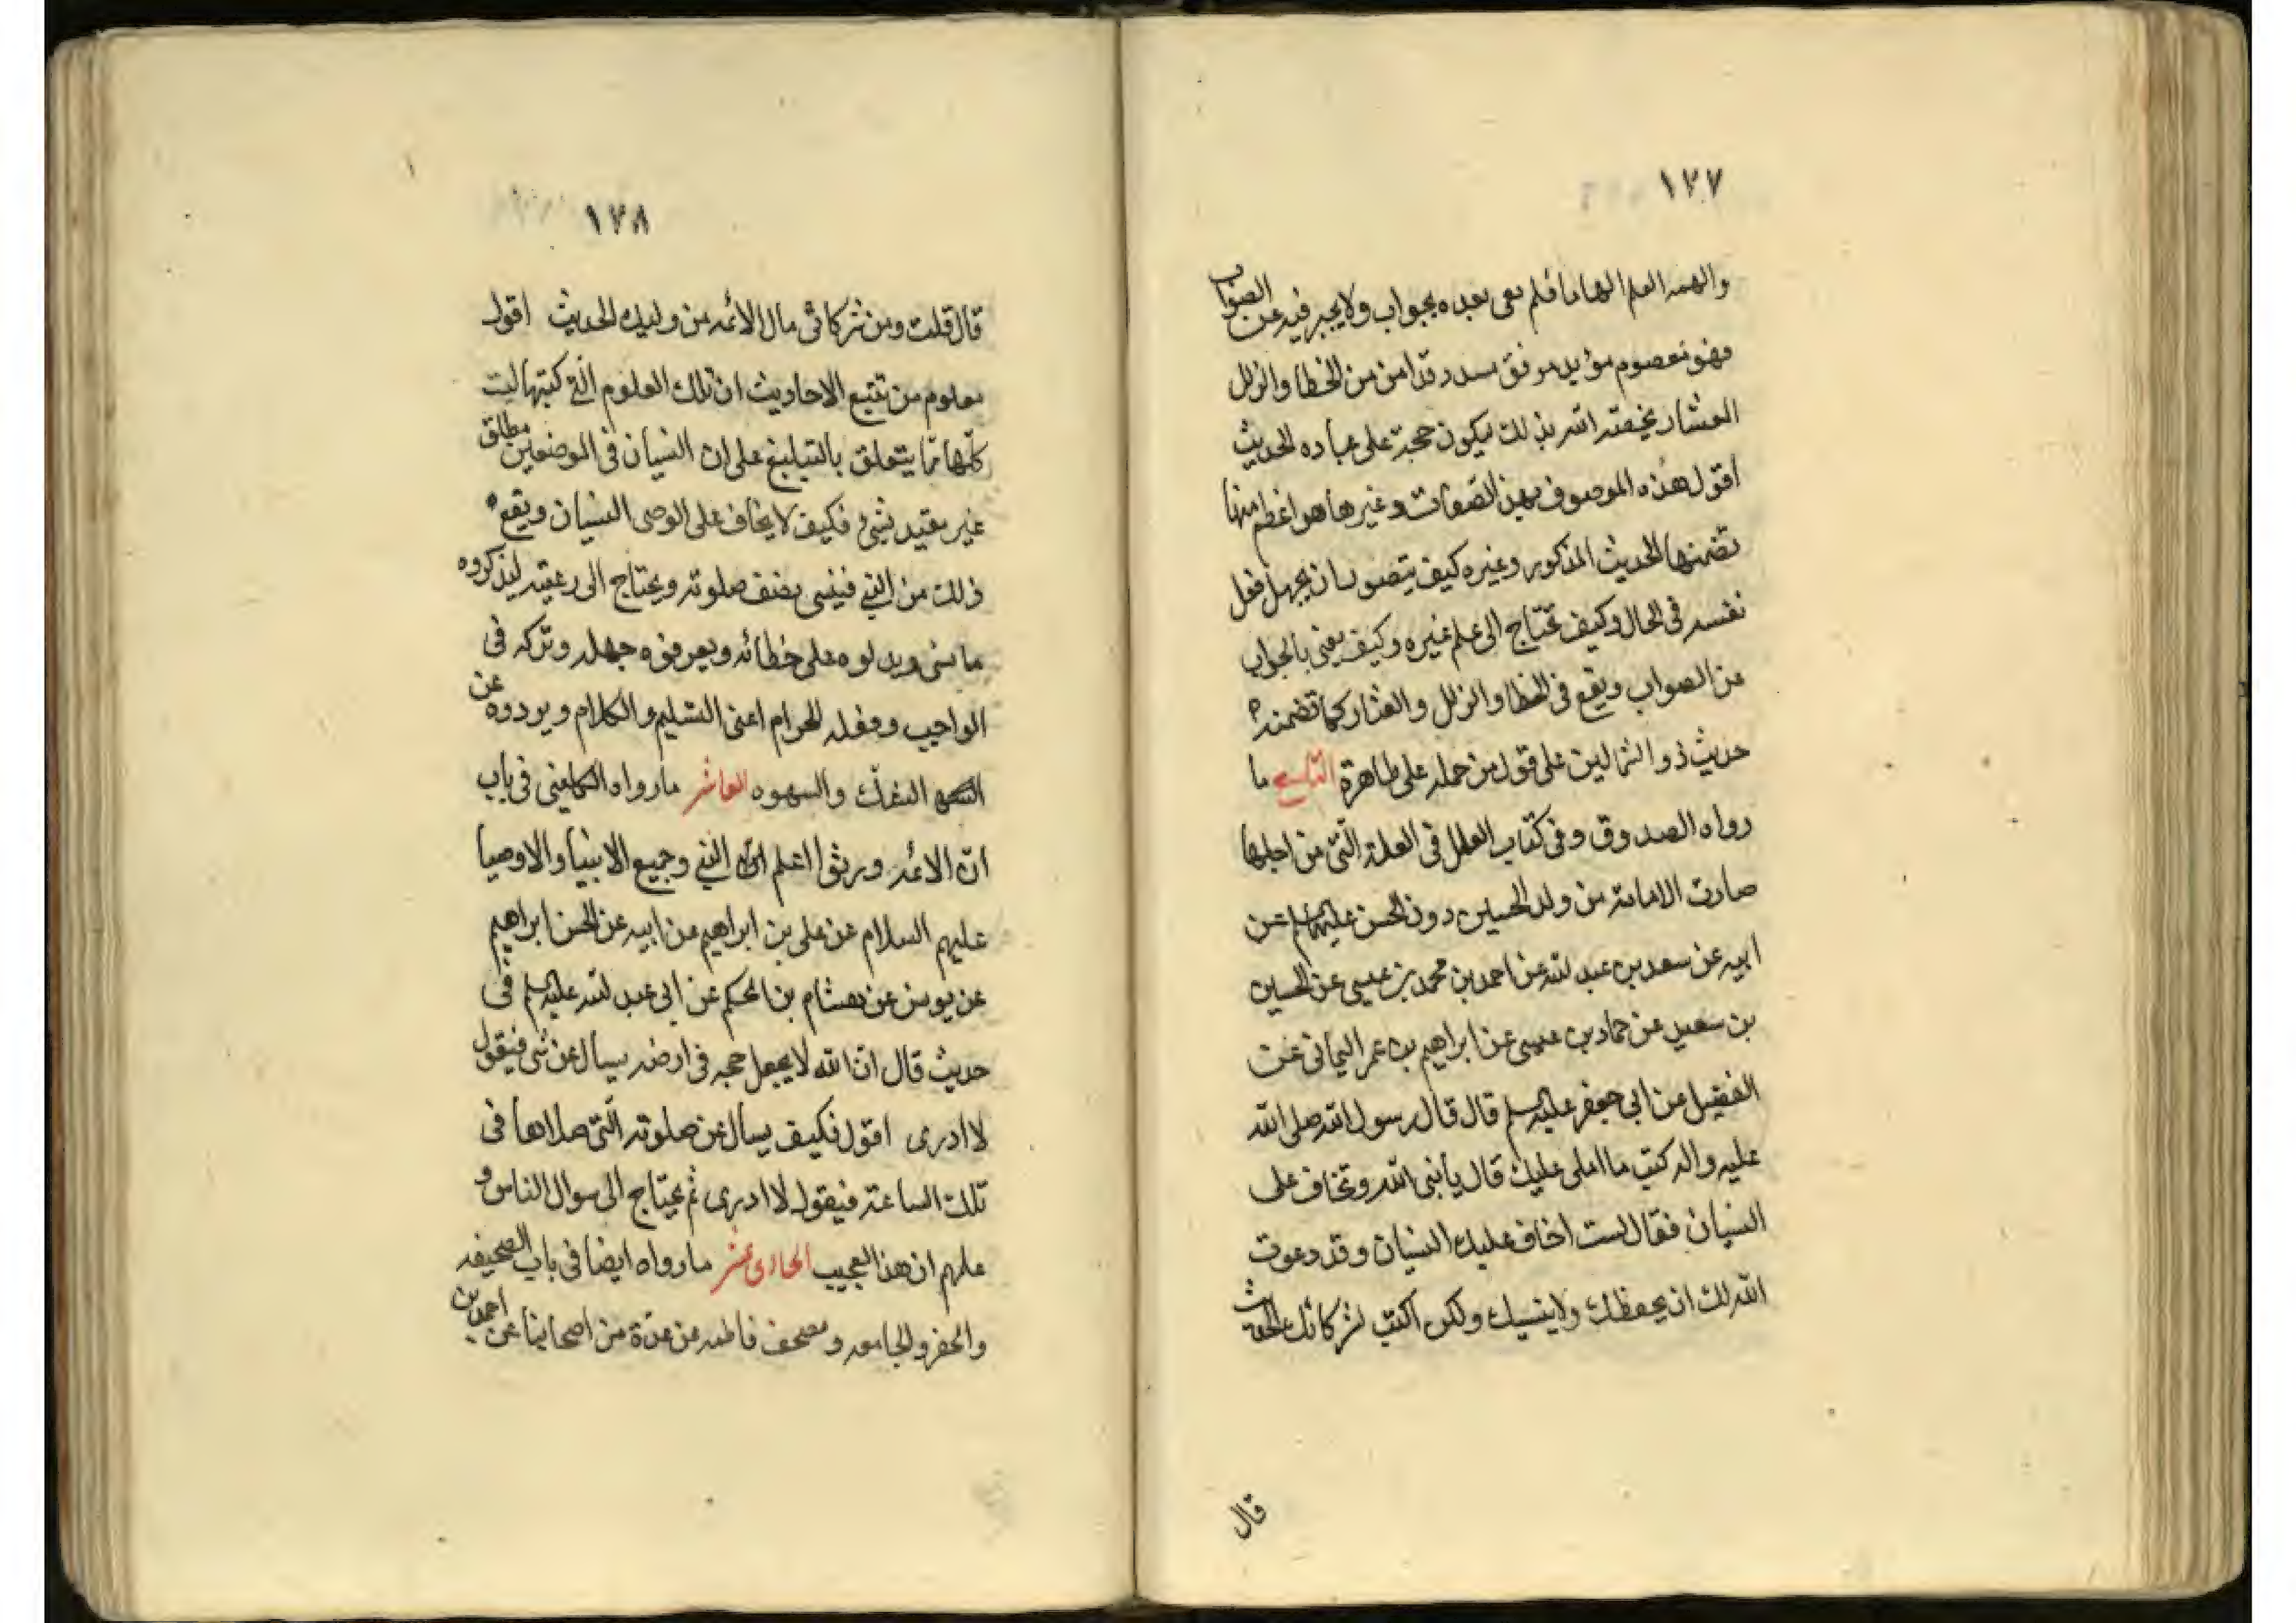 ١٧٧
والهمه العلم الهاما فلم يعى بعده بجواب ولا يجبر فيه عن الصواب
فهو معصوم مؤيد موفق مسدد قد امن من الخطا والزلل
العثار يخصه الله بذلك ليكون حجة على عباده الحديث
اقول هذه الموصوف بهن الصفات وغيرها هو اعظم منها
تضمنها الحديث المذكور وغيره كيف يتصور ان يجهل فعل
نفسه فى الحال وكيف تحتاج الى علم غيره وكيف يعنى بالجواب
عن الصواب ويقع فى الخطا والزلل والعثار كما تضمنه
حديث ذو الشمالين على قول من حمله على ظاهرة التاسع ما
رواه الصدوق وفى كتاب العلل فى العلة التى من اجلها
صارت الامامة من ولد الحسين دون الحسن عليهما السلم عن
ابيه عن سعد بن عبد لله عن احمد بن محمد بن عيسى عن الحسين
بن سعيد عن حماد بن عيسى عن ابراهيم بن عمر اليمانى عن
الفضيل عن ابى جعفر عليه السلم قال قال رسول الله صلى الله
عليه واله كتب ما املى عليك قال يا نبى الله وتخاف على
النسيان فقال لست اخاف عليك النسيان وقد دعوت
الله لك ان يحفظك ولا ينسيك ولكن اكتب لشركائك الحديث
قال
١٧٨
قال قلت ومن شركائى مال الائمه من ولدك الحديث اقول
معلوم من تتبع الاحاديث ان تلك العلوم التى كتبها ليت
كلها مما يتعلق بالتبليغ على ان النسيان فى الموضعين مطلق
غير مقيد بشئ فكيف لا يخاف على الوصى النسيان ويقع
ذلك من النبى فينسى نصف صلوته ويحتاج الى رعيته ليذكروه
ما نسى ويدلوه على خطائه ويعرفوه جهله وتركه فى
الواجب وفعله الحرام اعنى التسليم والكلام ويردوه عن
الشك والسهوه العاشر ما رواه الكلينى فى باب
ان الائمه ورثوا اعلم النبى وجميع الانبيا والاوصيا
عليهم السلام عن على بن ابراهيم عن ابيه عن الحسن ابراهيم
عن يونس عن هشام بن الحكم عن ابى عبد لله عليه السلم فى
حديث قال ان الله لا يجعل حجه فى ارضه يسال عن شى فيقول
لا ادرى اقول فكيف يسال عن صلوته التى صلاها فى
تلك الساعة فيقول لا ادرى ثم يحتاج الى سوال الناس و
علمهم ان هذا لعجيب الحادى عشر ما رواه ايضا فى باب الصحيفه
والجفر والجامعه ومصحف فاطمه عن عدة من اصحابنا عن احمد بن